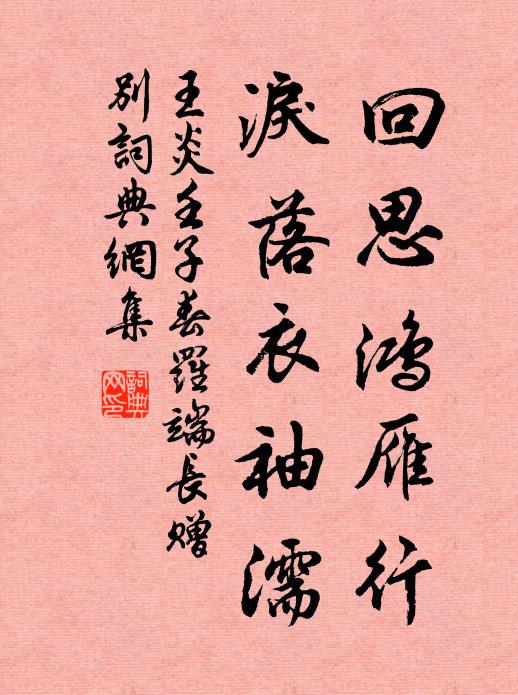 回思鴻雁行
淚落衣袖濡
王炎壬子春羅端長贈
別詞典網集
詞典網印